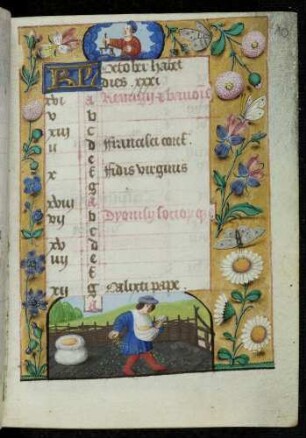 KL October habet
dies xxxi
xvi a Remigii
v b
xiii c
ii d Francisci conf.
e
x f Fidis virginis
g
xviii a
vii b Dyonisii socior; q;
c
xv d
iiii e
f
xii g Calixti pape.
a